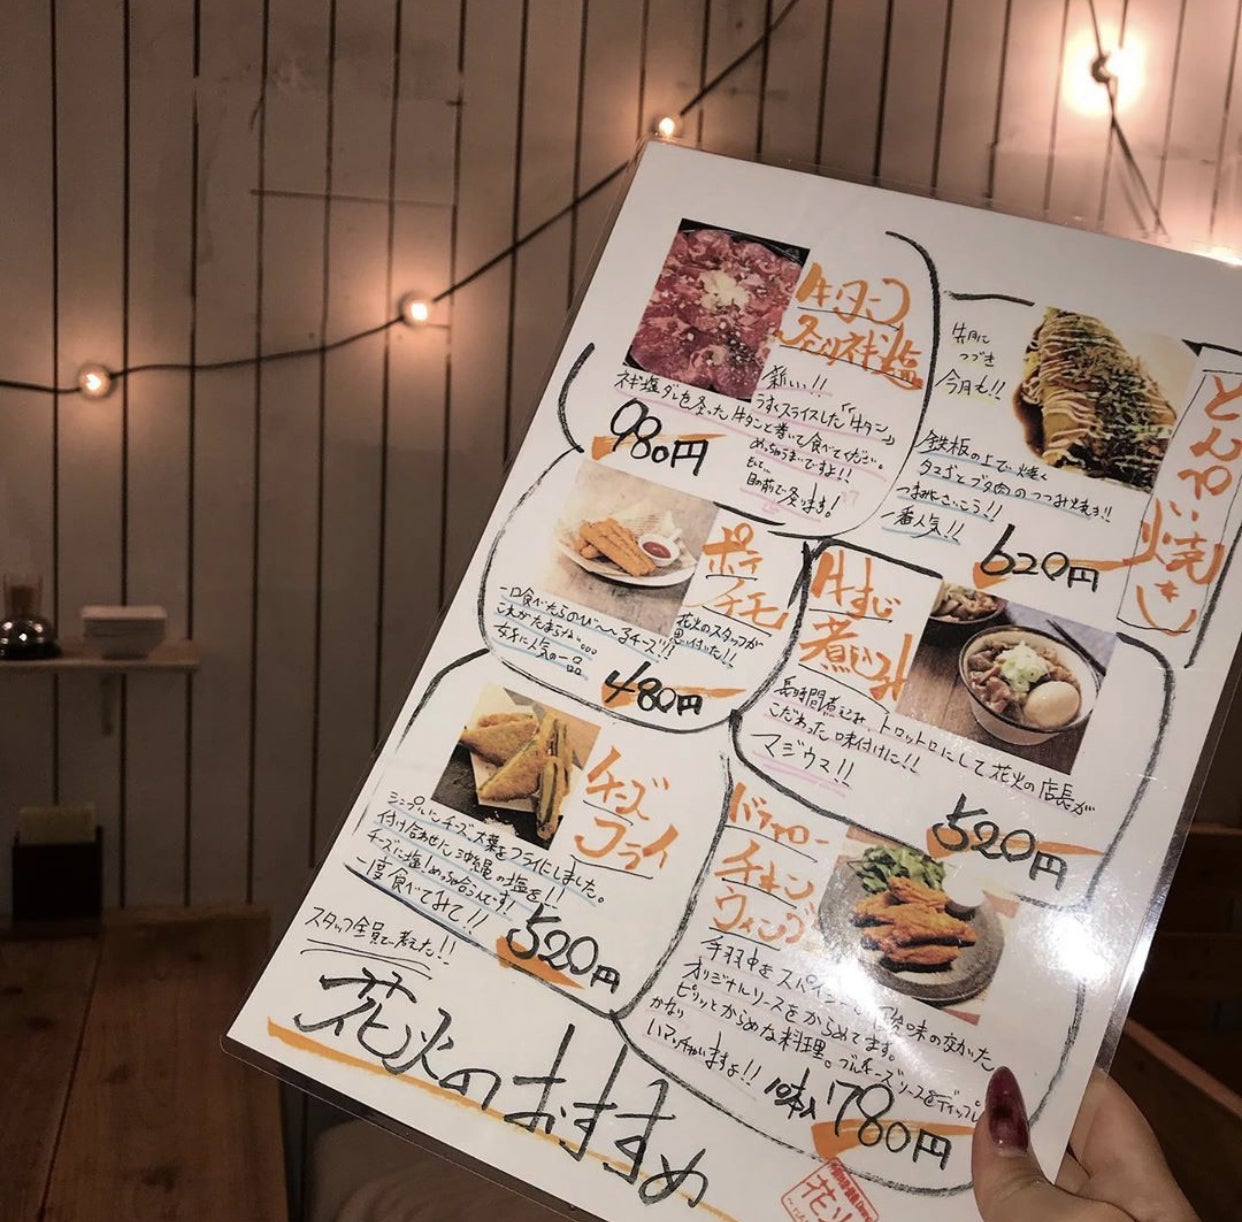 牛タン
炙りネギ塩
新しい!!
うすくスライスした「牛タン」
ネギ塩ダレを炙った牛タンと巻いて食べてください。
めっちゃうまいですよ!!
そして…
目の前で炙ります!
980円
とんぺい焼き
先月に
つづき
今月も!!
鉄板の上で焼く
タマゴとブタ肉のつつみ焼き!!
つまみにさいこう!!
一番人気!!
620円
ポテ
チモ
一口食べたらのび〜〜るチーズ!!
これがたまらない。。。
女子に人気の一品
花火のスタッフが
思い付いた!!
480円
牛すじ
煮込み
長時間煮込み、トロットロにして花火の店長が
こだわった味付けに!!
マジウマ!!
520円
チーズ
フライ
シンプルにチーズ、大葉をフライにしました。
付け合わせに沖縄の塩を!!
チーズに塩!めっちゃ合うんです!
一度食べてみて!!
520円
バッファロー
チキン
ウィング
手羽中をスパイシー 酸味の交わった
オリジナルソースをからめてます。
ピリッとからめな料理。ブルーチーズソースをディップし
かなり
いマッチしますよ!!
10本入 780円
スタッフ全員で考えた!!
花火のおすすめ
花火